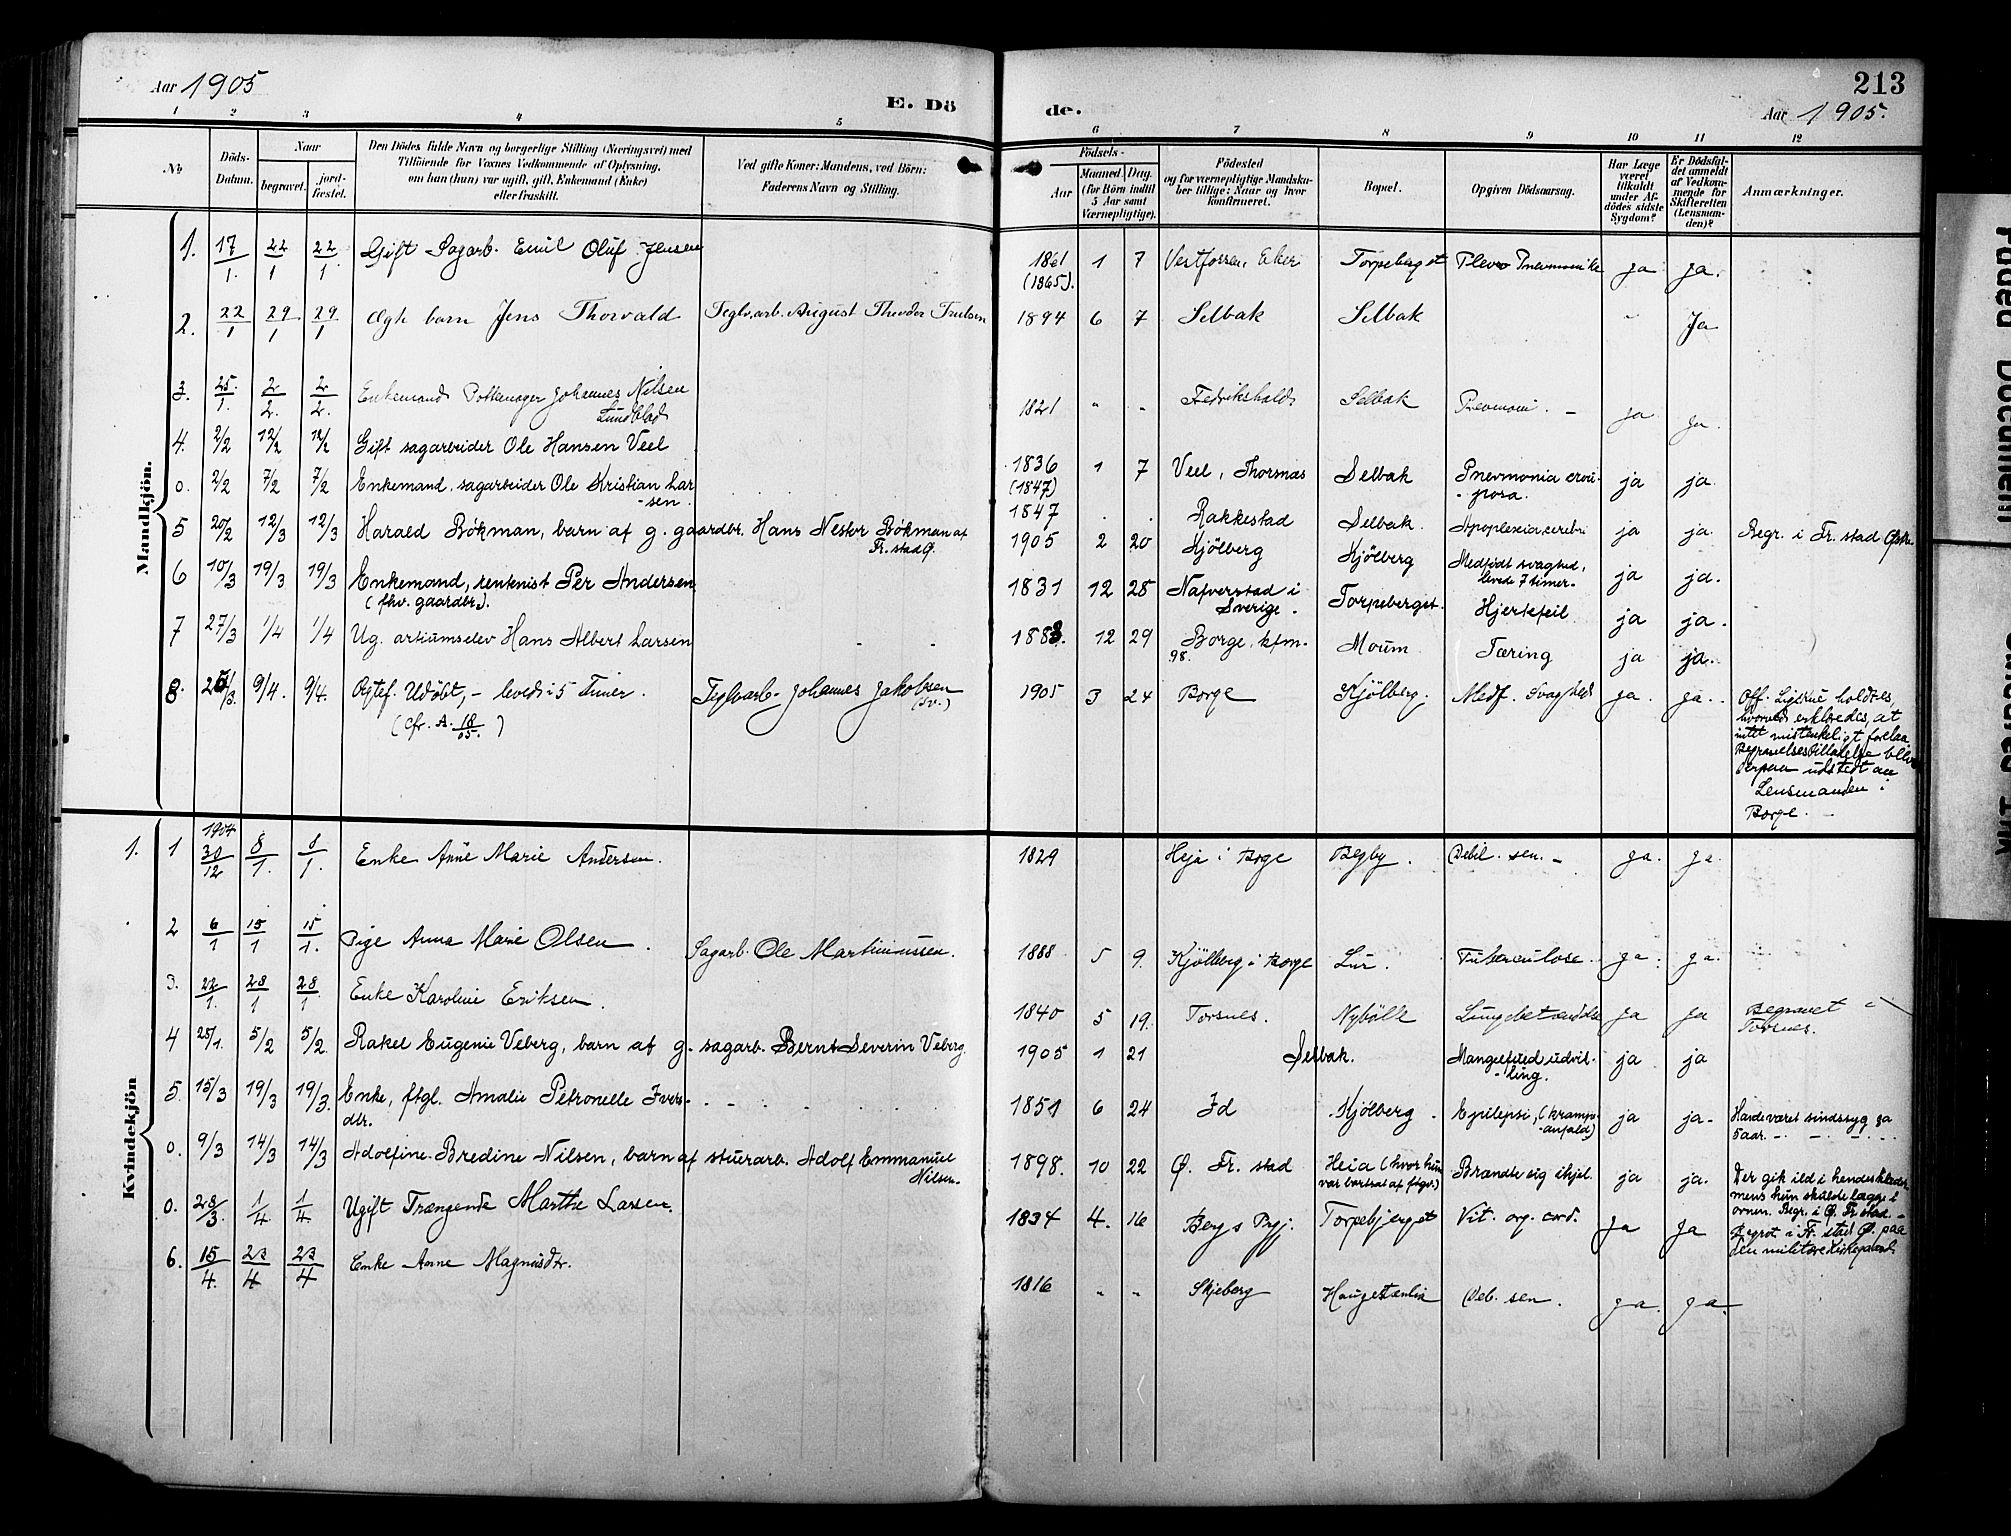 213
Aar 1905
E. Dö de.
Aar 1905.
1 2 3 4 5 6 7 8 9 10 11 12
No
Döds-Datum.
Naar
begravet.
jord-fæstet.
Den Dödes fulde Navn og borgerlige Stilling (Næringsvei) med
Tilföiende for Voxnes Vedkommende af Oplysning,
om han (hun) var ugift, gift, Enkemand (Enke)
eller fraskilt.
Ved gifte Koner: Mandens, ved Börn:
Faderens Navn og Stilling.
Födsels-
Aar
Maaned. Dag.
(for Börn indtil
5 Aar samt
Værnepligtige).
Födested
og for værnepligtige Mandska-
ber tillige: Naar og hvor
konfirmeret.
Bopæl.
Opgiven Dödsaarsag.
Har Læge
været
tilkaldt
under Af-
dödes sidste
Sygdom?
Er Dödsfal-
det anmeldt
af Vedkom-
mende for
Skifteretten
(Lensman-
den)?
Anmærkninger.
Mandkjön.
1. 17/1. 22/1 22/1. Gift Sagarb. Emil Oluf Jensen 1861 (1865). 1 7 Vestfossen, Eker Torpeberget Plevro Pnevmonike ja ja.
2. 22/1 29/1 29/1 Ægte barn Jens Thorvald Teglv.arb. August Theodor Trulsen 1894 6 7 Selbak Selbak " Ja
3. 25./1. 2/2. 2/2. Enkemand Pottemager Johannes Nilsen
Lundblad 1821 " " Fredrikshald Selbak Pnevmoni. - ja ja.
4. 2/2 12/2 12/2 Gift sagarbeider Ole Hansen Veel 1836 (1847) 1 7 Veel, Thorsnæs Selbak Pnevmonia crou-
-posa. ja ja.
0. 2/2 7/2 7/2 Enkemand, sagarbeider Ole Kristian Lar
-sen. 1847 . . Rakkestad Selbak. Apoplexia cerebri ja ja. Begr. i Fr.stad Østre.
5 20/2 12/3 12/3 Harald Bøkman, barn af g. gaardbr. Hans Nestor Bøkman af
Fr.stad Ø. 1905 2 20 Kjölberg Kjölberg Medfödt svaghed,
levede 7 timer. ja ja.
6 10/3 19/3 19/3 Enkemand, rentenist Per Andersen
(fhv. gaardbr.). 1831 12 28 Nafverstad i
Sverige. Torpeberget. Hjertefeil. ja ja.
7 27/3 1/4 1/4 Ug. artiumselev Hans Albert Larsen 1888. 12 29 Borge, kfm.
98. Moum Tæring ja ja.
8. 26/3 9/4. 9/4. Ægtef. Udøbt, - levede i 5 Timer. Teglv.arb. Johannes Jakobsen
(Sv.)
(cfr. A. 18/05.) 1905 3 24 Borge Kjölberg. Medf. Svaghed ja. ja. Off. Ligskue holdtes,
hvorved erklæredes, at
intet mistænkeligt forelaa
Begravelsestilladelse blev
derpaa udstedt av
Lensmanden i
Borge.
Kvindekjön
1. 1 1904 30/12 8/1. 8/1. Enke Anne Marie Andersen. 1829 Heja i Borge Begby. Debil. sen. - ja. ja.
2 6/1 15/1 15/1. Pige Anna Marie Olsen. Sagarb. Ole Martinussen. 1888 5 9. Kjölberg i Borge Lur. Tuberculose. ja. ja.
3. 22/1. 28/1 28/1 Enke Karoline Eriksen. 1840 5 19. Torsnes. Nybölle Lungebetændelse ja ja Begravet i
Torsnes.
4 28/1. 5/2 5/2. Rakel Eugenie Veberg, barn af g. sagarb. Bernt Severin Veberg. 1905 1 21 Selbak. Mangelfuld udvik-
-ling. ja ja
5. 15/3 19/3 19/3. Enke, ftgl. Amalie Petronelle Ivers-
dtr. 1851 6 24 Id Kjölberg. Epilepsi, (krampe-
-anfald) ja ja. Havde været sindssyg ca
5 aar.
0. 9/3 14/3 14/3 Adolfine Bredine Nilsen, barn af sturarb. Adolf Emmanuel
Nilsen. 1898. 10 22 Ø. Fr.stad Heia (hvor hun
var bortsat af ftgv.) Brændte sig ihjel. ja ja. Der gik ild i hendes klæder
mens hun skulde lægge i
ovnen. Begr. i Ø. Fr.stad.
0. 28/3. 1/4. 1/4 Ugift Trængende Marthe Larsen. 1834 4. 16 Bergs Prgj. Torpebjerget Vit. org. cord. ja ja Begrvt. i Fr.stad Ø. paa
den militære Kirkegaard.
6. 15/4. 23/4 23/4 Enke Anne Magnusdtr. 1816 " " Skjeberg Haugetænlia Deb. sen. ja. ja.